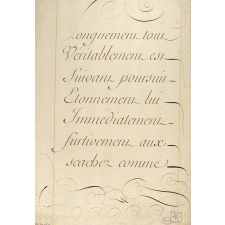 Longuement tout
Véritablement est
Suivant poursuit
Etonnement lui
Immédiatement
furtivement aux
scachez comme